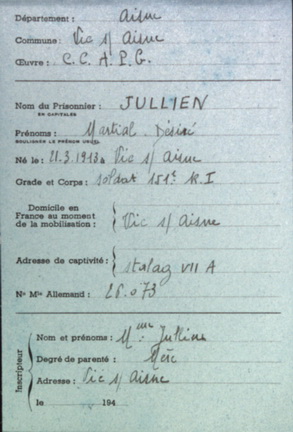 Département : Aisne
Commune : Vic s/ Aisne
Œuvre : C. C. A. P. G.
Nom du Prisonnier : JULLIEN
EN CAPITALES
Prénoms : Martial Désiré
SOULIGNER LE PRÉNOM USUEL
Né le : 21.3.1913 à Vic s/ Aisne
Grade et Corps : soldat 151e R.I
Domicile en
France au moment
de la mobilisation : Vic s/ Aisne
Adresse de captivité : stalag VII A
No Mle Allemand : 28.073
Inscripteur
Nom et prénoms : Mme Jullien
Degré de parenté : Mère
Adresse : Vic s/ Aisne
le 194